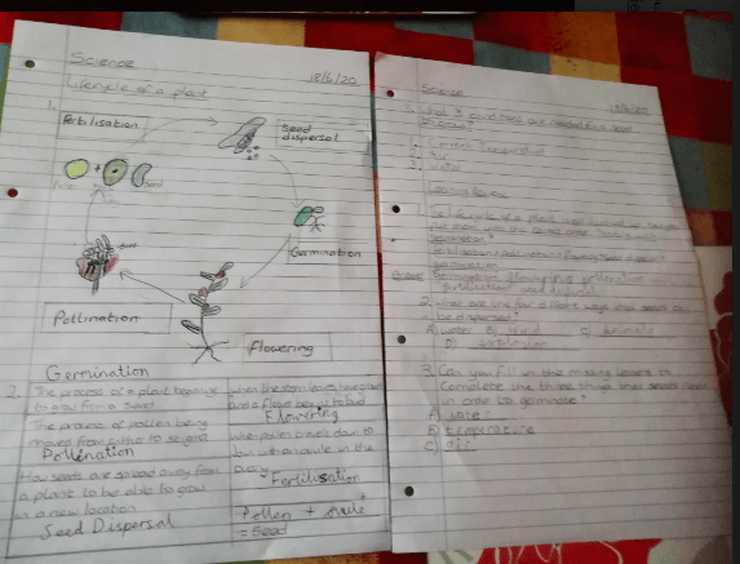 Science
18/6/20
Lifecycle of a plant
1.
Fertilisation
Seed
dispersal
Germination
Pollination
Flowering
Germination
2. The process of a plant begining
to grow from a seed
When the stem leaves have grown
and a flower begins to bud
Flowering
The process of pollen being
moved from anther to stigma
Pollination
When pollen travels down to
Join with an ovule in the
ovary
Fertilisation
How seeds are spread away from
a plant to be able to grow
in a new location
Seed Dispersal
Pollen + ovule
= Seed
Science
18/6/20
What 3 conditions are needed for a seed
to grow?
1. Correct Temperature
2. Air
3. Water
Looking Review
put them into the correct order. Starting with
germination?
germination
Germination, flowering, pollination
fertilisation seed dispersal
2. What are the four different ways that seeds can
be dispersed?
A) water B) wind C) animals
D) explosion
3. Can you fill in the missing letters to
Complete the three things that seeds need
in order to germinate?
A) water
B) temperature
C) air